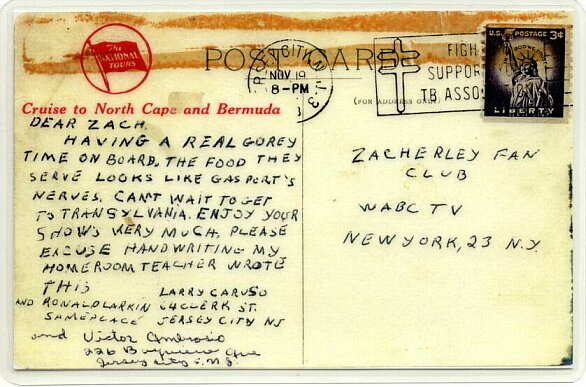 The
NATIONAL
TOURS
POST CARD
Cruise to North Cape and Bermuda
CITY N.J.
NOV 19
8-PM
FIGH
SUPPOR
TB ASSO
U.S. POSTAGE 3¢
IN GOD WE TRUST
LIBERTY
(FOR ADDRESS ONLY)
DEAR ZACH.
HAVING A REAL GOREY
TIME ON BOARD. THE FOOD THEY
SERVE LOOKS LIKE GASPORT'S
NERVES. CAN'T WAIT TO GET
TO TRANSYLVANIA. ENJOY YOUR
SHOWS VERY MUCH. PLEASE
EXCUSE HANDWRITING MY
HOMEROOM TEACHER WROTE
THIS
LARRY CARUSO
AND RONALD LARKIN 54 CLERK ST.
SAMEPLACE JERSEY CITY NJ
and Victor Ambrosio
226 Ave
Jersey City, N.J.
ZACHERLEY FAN
CLUB
WABC TV
NEW YORK, 23 N.Y.